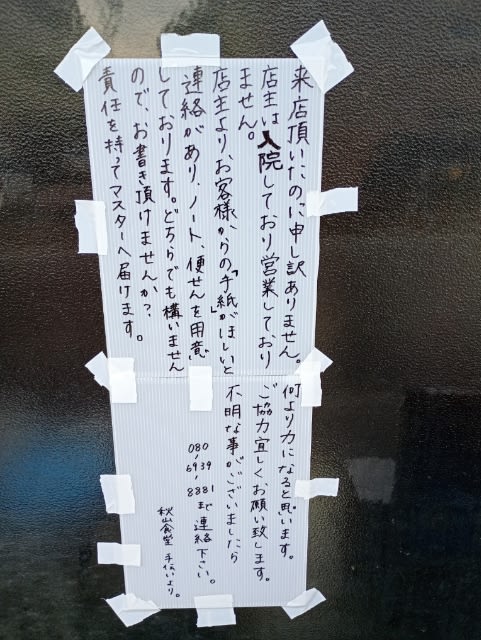 来店頂いたのに申し訳ありません。
店主は入院しており営業しており
ません。
店主より、お客様からの「手紙」がほしいと
連絡があり、ノート、便せんを用意
しております。どちらでも構いません
ので、お書き頂けませんか?
責任を持ってマスターへ届けます。
何より力になると思います。
ご協力宜しくお願い致します。
不明な事がございましたら
080-6939-8881まで連絡下さい。
秋山食堂 手伝いより。